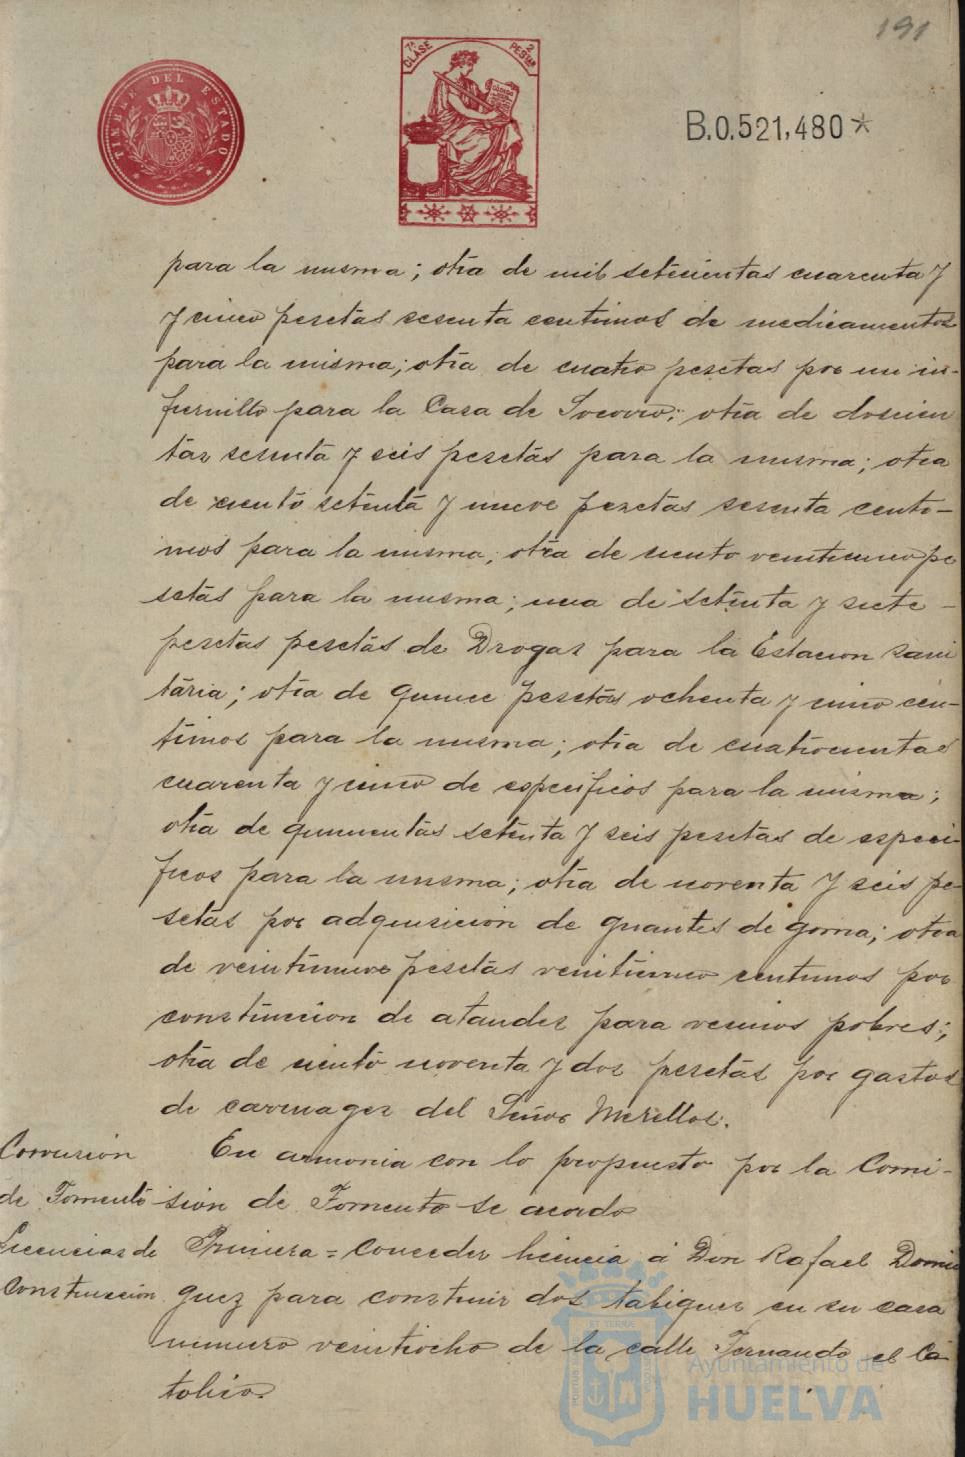 191
7ª CLASE
2 PESETAS
TIMBRE DEL ESTADO
B.0.521,480*
para la misma; otra de mil setecientas cuarenta y
y cinco pesetas sesenta centimos de medicamentos
para la misma; otra de cuatro pesetas por un in-
fiernillo para la Casa de Socorro; otra de doscien
tas sesenta y seis pesetas para la misma; otra
de ciento setenta y nueve pesetas sesenta centi-
mos para la misma; otra de ciento veinticinco pe
setas para la misma; una de setenta y siete -
pesetas pesetas de Drogas para la Estacion sani
taria; otra de quince pesetas ochenta y cinco cen-
timos para la misma; otra de cuatrocientas
cuarenta y cinco de especificos para la misma;
otra de quinientas setenta y seis pesetas de especi-
ficos para la misma; otra de noventa y seis pe-
setas por adquisicion de guantes de goma; otra
de veintinueve pesetas veinticinco centimos por
construccion de ataudes para vecinos pobres;
otra de ciento noventa y dos pesetas por gastos
de carruages del Señor Merellos.
Comision
de Fomento
En armonia con lo propuesto por la Comi-
sion de Fomento se acordo
Licencias de
Construccion
Primera = Conceder licencia á Don Rafael Domin
guez para construir dos tabiques en su casa
numero veintiocho de la calle Fernando el Ca-
tolico.
ET TERRÆ
Ayuntamiento de
HUELVA